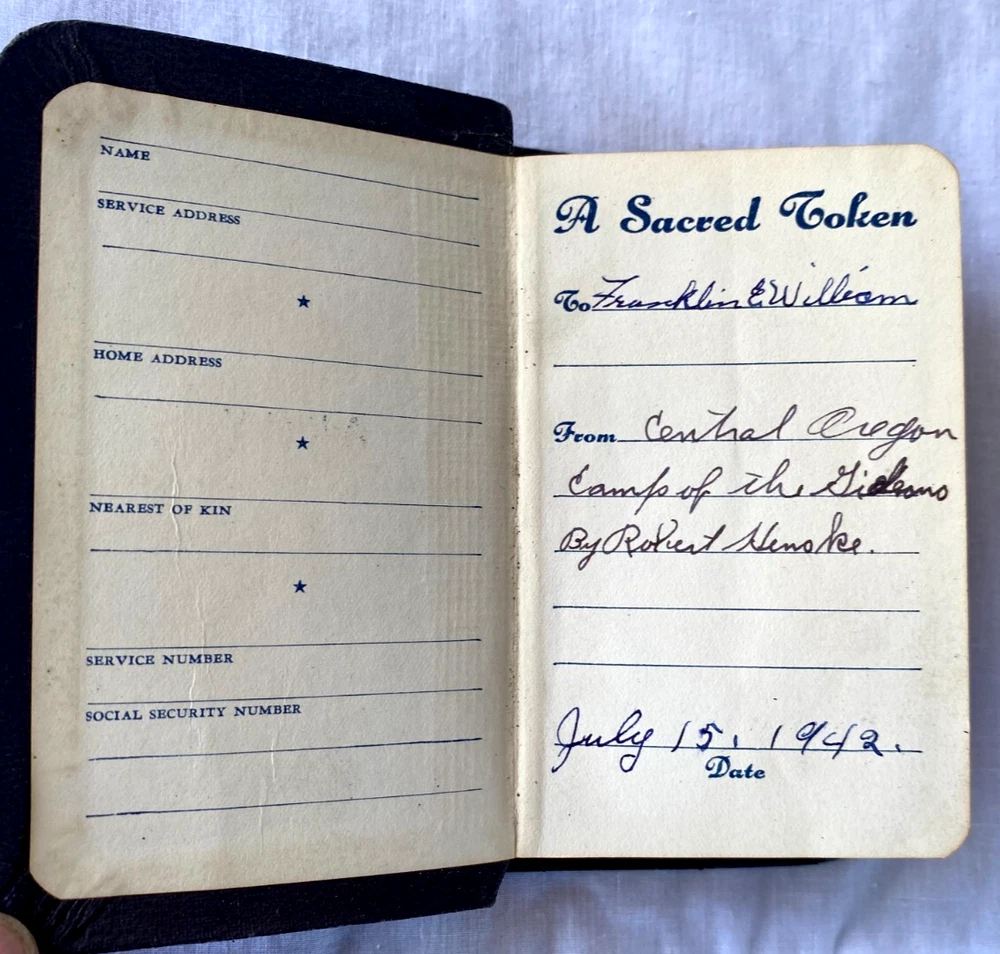 NAME
SERVICE ADDRESS
★
HOME ADDRESS
★
NEAREST OF KIN
★
SERVICE NUMBER
SOCIAL SECURITY NUMBER
A Sacred Token
To Franklin E William
From Central Oregon
Camp of the Gideons
By Robert Henske.
July 15, 1942.
Date